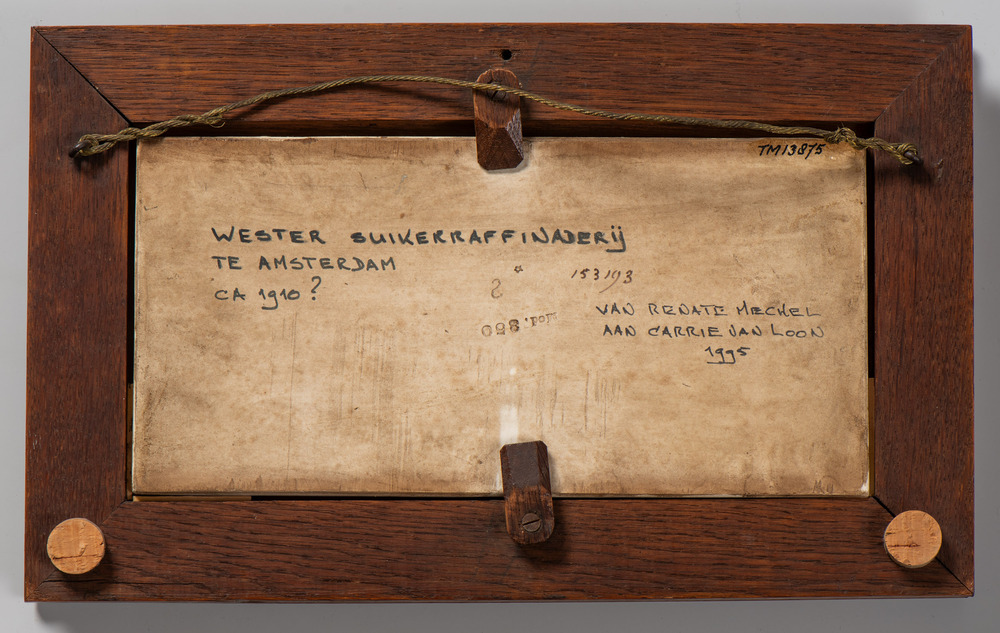 TM13875
WESTER SUIKERRAFFINADERIJ
TE AMSTERDAM
CA 1910?
153193
VAN RENATE MECHEL
AAN CARRIE VAN LOON
1995
Mod. 350